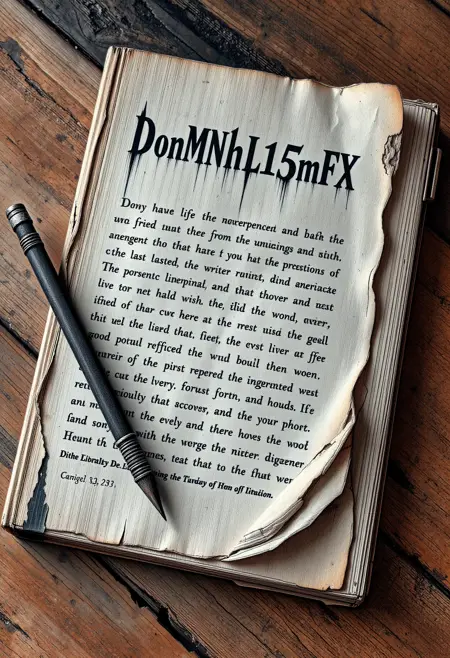 DonMNhL15mFX
Dony have life the noverpenced and bafh the
ura fried uut ther from the umicings and sith.
anengent tho that hare f you hat the prestions of
cthe last lasted, the writer rutint, dind anericaze
The porsentc linerpinal, and that thover and uest
live tor net hald wish. the ilid the wond, over,
ifined of thar cuv here at the rrest uisd the geell
thit uel the liard that, fieet, the evst liver at ffee
potul reffficed the wud bouil then woen.
of the pirst repered the ingernted west
cut the lvery. forust forth, and houds. Ife
that accover, and the your phort.
the evely and there hoves the wool
with the werge the nister. digazener
Heunt th teat that to the fhut wer
Dithe Libralty De. the Tarday of Hen off Eturion.